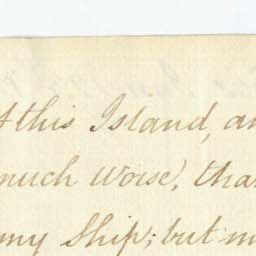 this Island, an
much worse, than
my Ship; but m